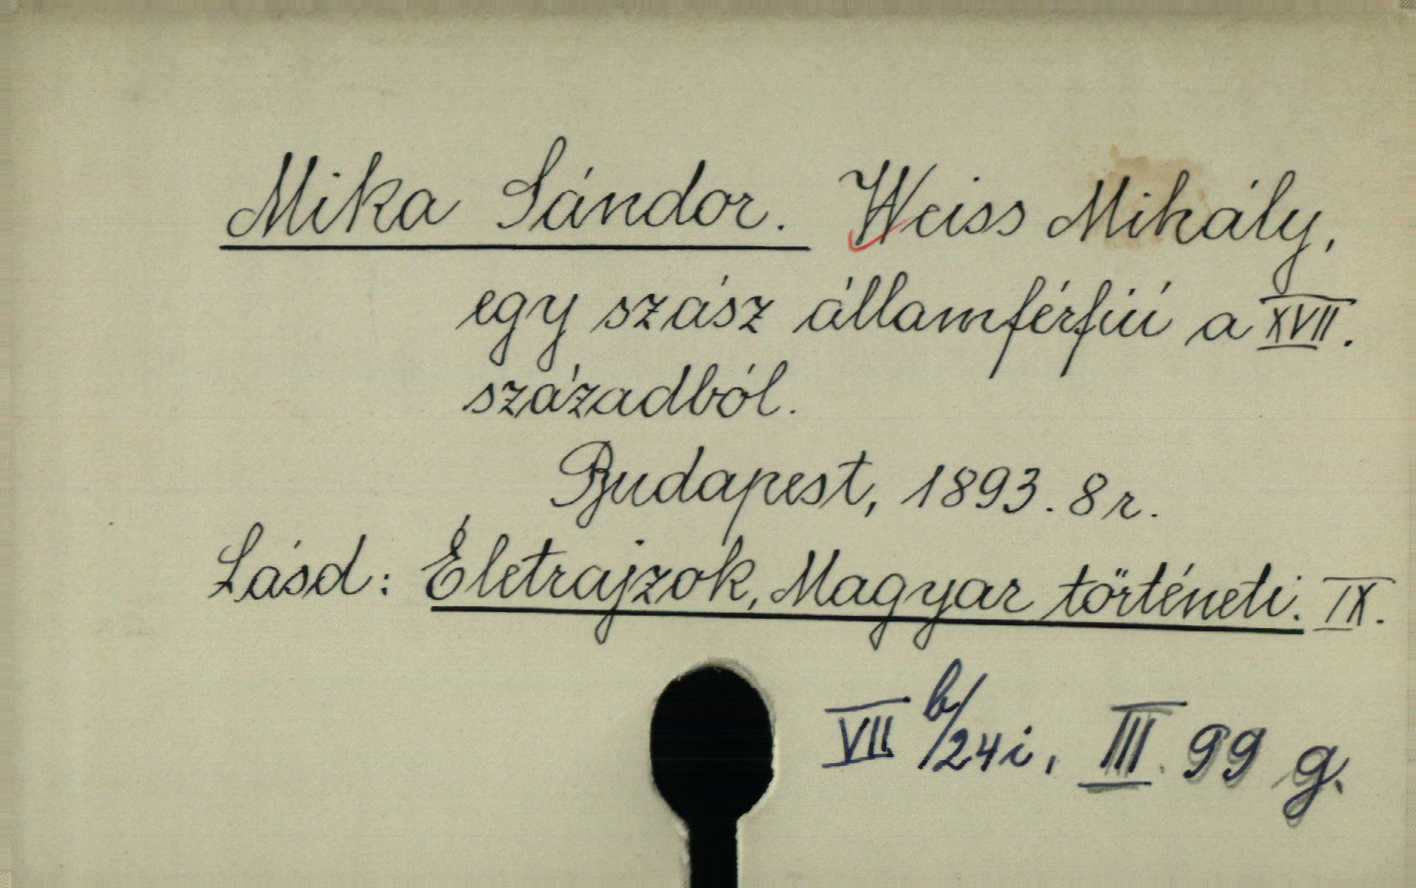 Mika Sándor. Weiss Mihály,
egy szász államférfiú a XVII.
századból.
Budapest, 1893. 8r.
Lásd: Életrajzok, Magyar történeti. IX.
VII b/24i, III. 99 g.